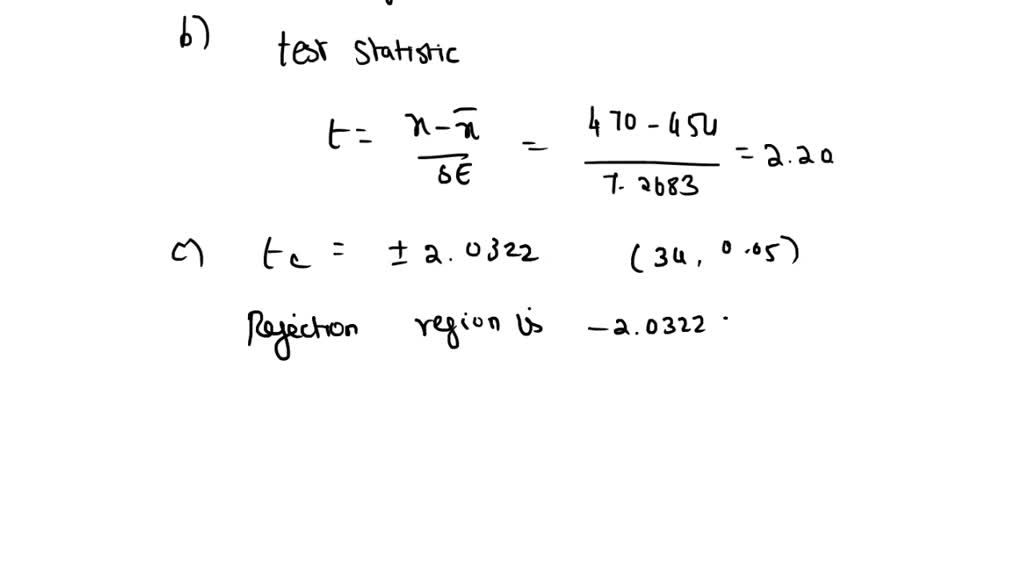 b) test statistic
t = x - x̄ / SE = 470 - 454 / 7.2683 = 2.20
c) tc = ± 2.0322 (34, 0.05)
Rejection region is -2.0322